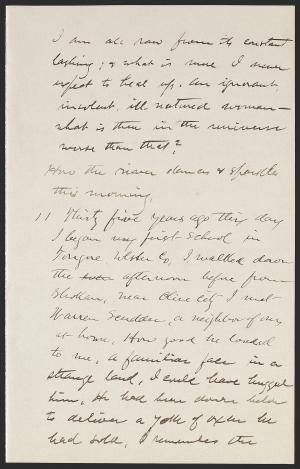 I am all raw from its constant
lashing; & what is more I never
expect to heal up. An ignorant,
insolent, ill natured woman —
what is there in the universe
worse than that?
How the river dances & sparkles
this morning,
11 Thirty five years ago this day
I began my first School in
Tongore Ulster Co, I walked down
the afternoon before from
Olive City I met
Warren Scudder, a neighbor of ours
at home, How good he looked
to me, a familiar face in a
strange land, I could have hugged
him, He had been down below
to deliver a yoke of oxen he
had sold, I remember the